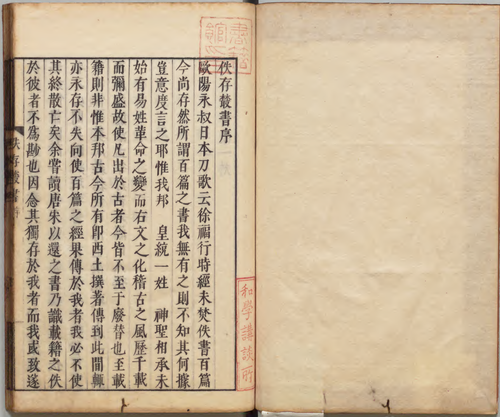 佚存叢書序
歐陽永叔日本刀歌云徐福行時經未焚佚書百篇
今尚存然所謂百篇之書我無有之則不知其何據
豈意度言之耶惟我邦　皇統一姓　神聖相承未
始有易姓革命之變而右文之化稽古之風歷千載
而彌盛故使凡出於古者今皆不至于廢替也至載
籍則非惟本邦古今所有卽西土撰著傳到此間輙
亦永存不失向使百篇之經果傳於我者我必不使
其終散亡矣余嘗讀唐宋以還之書乃識載籍之佚
於彼者不爲尠也因念其獨存於我者而我或致遂
佚存叢書序
和學講談所